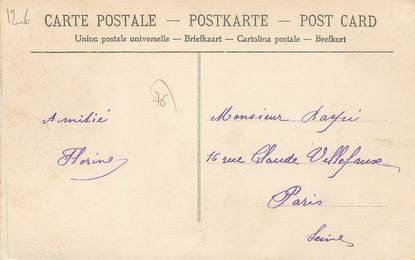 12€
CARTE POSTALE — POSTKARTE — POST CARD
Union postale universelle — Briefkaart — Cartolina postale — Brefkort
76
Amitié
Florine
Monsieur
16 rue Claude Villefaux
Paris
Seine